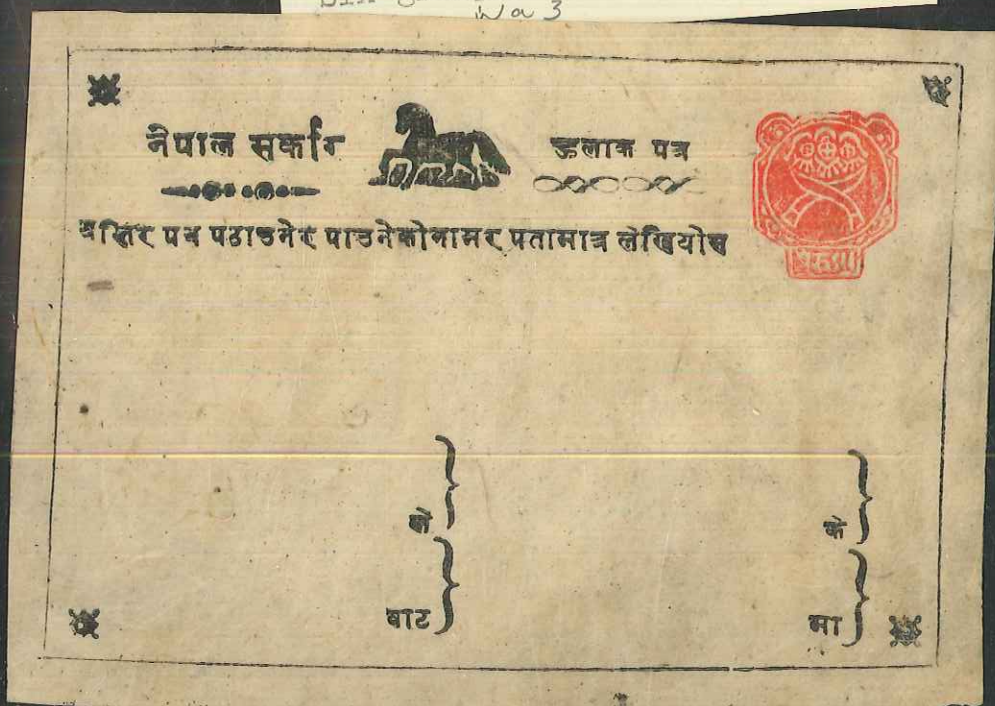 Wa 3
नेपाल सर्कार हुलाक पत्र
यस्तिर पत्र पठाउनेर पाउनेकोनामर पतामात्र लेखियोस
को के
बाट मा